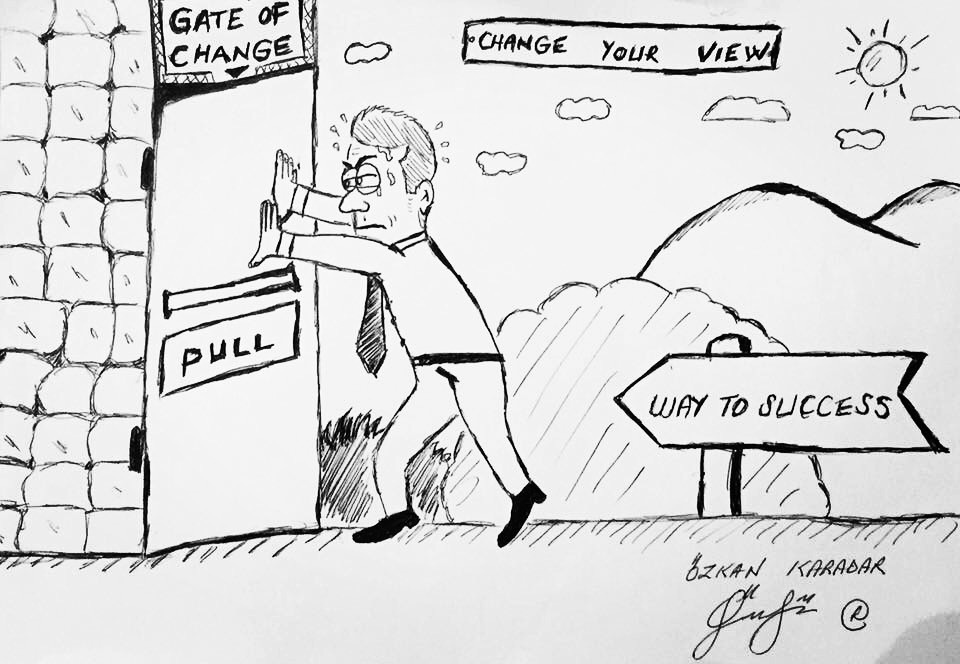 GATE OF
CHANGE
CHANGE YOUR VIEW
PULL
WAY TO SUCCESS
ÖZKAN KARADAR
®